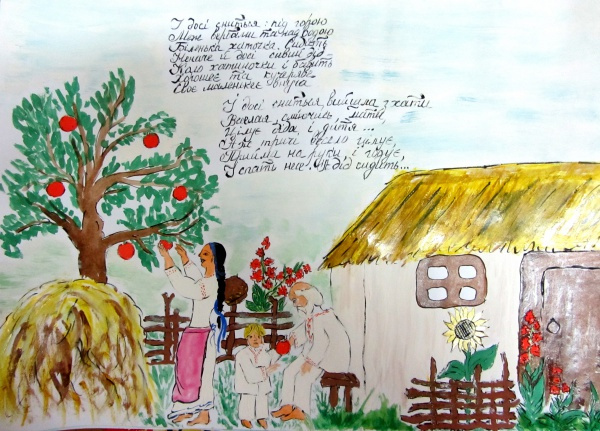 І досі сниться: під горою
Меж вербами та над водою
Біленька хаточка. Сидить
Неначе й досі сивий дід
Коло хатиночки і бавить
Хорошеє та кучеряве
Своє маленькеє внуча
І досі сниться, вийшла з хати
Веселая, сміючись, мати,
Цілує діда і дитя...
Аж тричі весело цілує,
Прийма на руки, і годує,
І спати несе. А дід сидить...